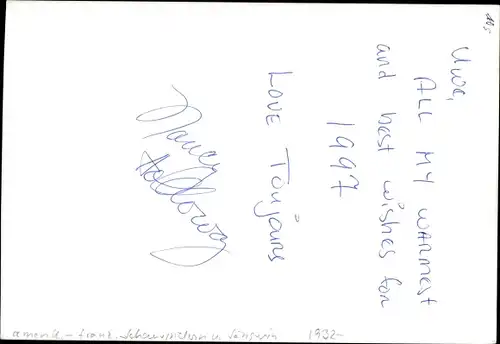 Uwe,
ALL MY WARMEST
and best wishes for
1997
LOVE Toujours
Nancy
Holloway
amerik. - franz. Schauspielerin u. Sängerin 1932-